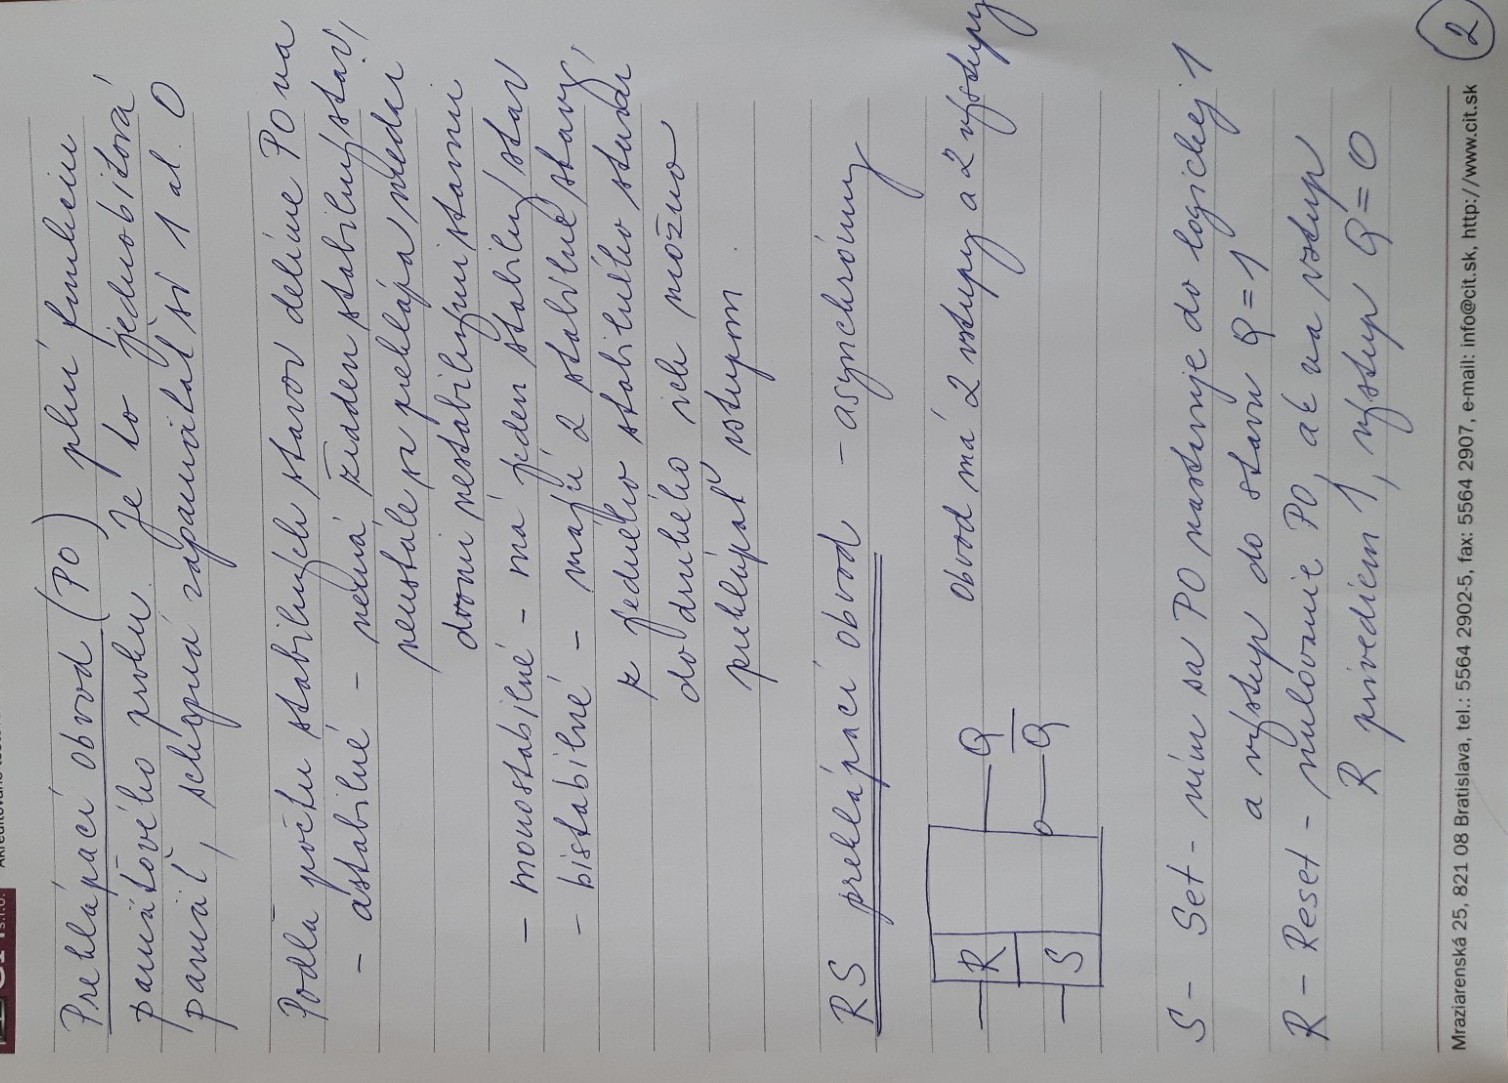 s.r.o.
Preklápací obvod (PO) plní funkciu
pamäťového prvku. Je to jednobitová
pamäť, schopná zapamätať si 1 al. 0
Podľa počtu stabilných stavov delíme PO na
- astabilné - nemá žiaden stabilný stav,
neustále sa preklápa medzi
dvomi nestabilnými stavmi
- monostabilné - má jeden stabilný stav
- bistabilné - majú 2 stabilné stavy,
z jedného stabilného stavu
do druhého ich možno
preklápať vstupom.
RS preklápací obvod - asynchrónny
R
Q
obvod má 2 vstupy a 2 výstupy
S
Q̅
S - Set - ním sa PO nastavuje do logickej 1
a výstup do stavu Q = 1
R - Reset - nulovanie PO, ak na vstup
R privediem 1, výstup Q = 0
Mraziarenská 25, 821 08 Bratislava, tel.: 5564 2902-5, fax: 5564 2907, e-mail: info@cit.sk, http://www.cit.sk
2